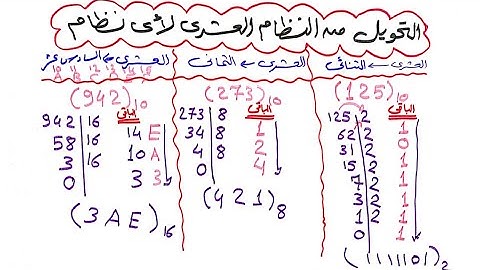 التحويل من النظام العشرى لأى نظام
العشرى ← الثنائى
(125)10
الباقى
125 2 1
62 2 0
31 2 1
15 2 1
7 2 1
3 2 1
1 2 1
0
(1111101)2
العشرى ← الثمانى
(273)10
الباقى
273 8 1
34 8 2
4 8 4
0
(421)8
العشرى ← السادس عشر
10 11 12 13 14 15
A B C D E F
(942)10
الباقى
942 16 14 E
58 16 10 A
3 16 3 3
0
(3AE)16